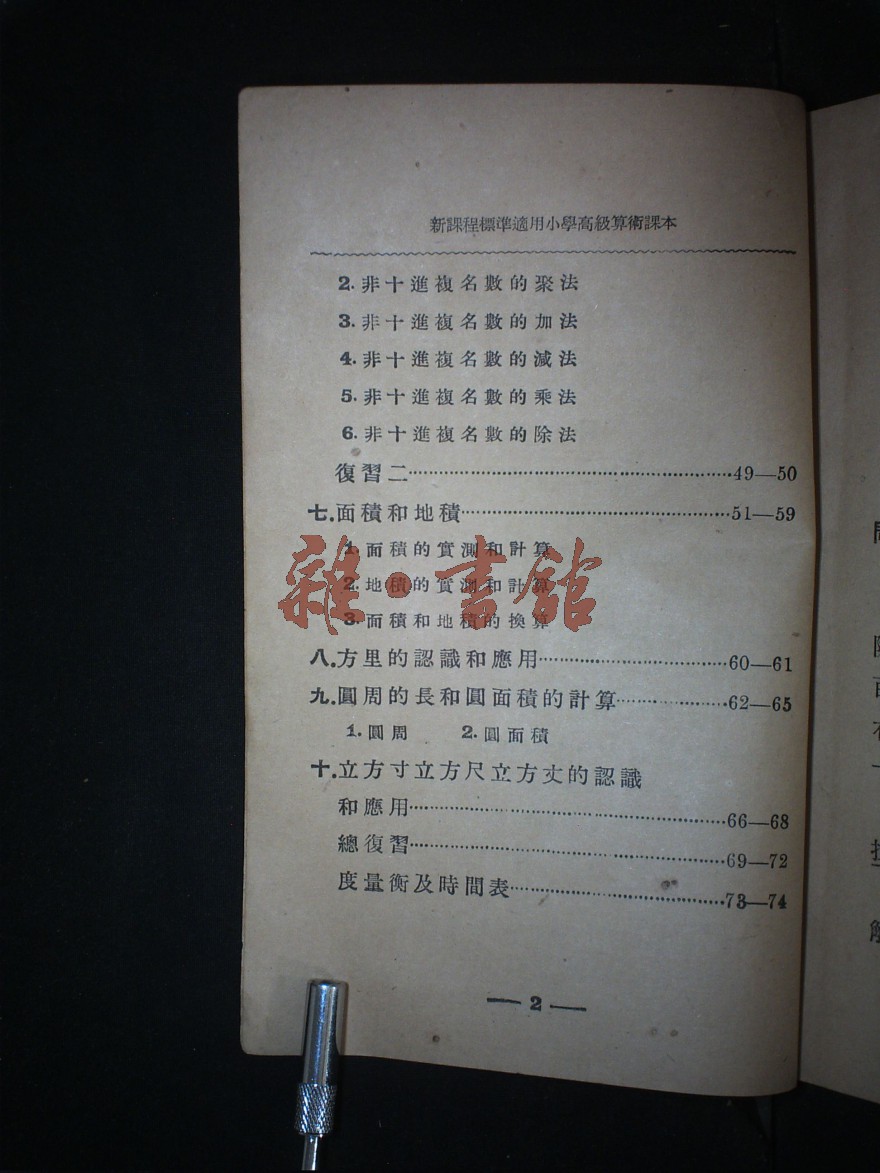 新課程標準適用小學高級算術課本
2. 非十進複名數的聚法
3. 非十進複名數的加法
4. 非十進複名數的減法
5. 非十進複名數的乘法
6. 非十進複名數的除法
復習二…………49—50
七.面積和地積…………51—59
1. 面積的實測和計算
2. 地積的實測和計算
3. 面積和地積的換算
雜·書館
八.方里的認識和應用…………60—61
九.圓周的長和圓面積的計算…………62—65
1. 圓周 2. 圓面積
十.立方寸立方尺立方丈的認識
和應用…………66—68
總復習…………69—72
度量衡及時間表…………73—74
— 2 —